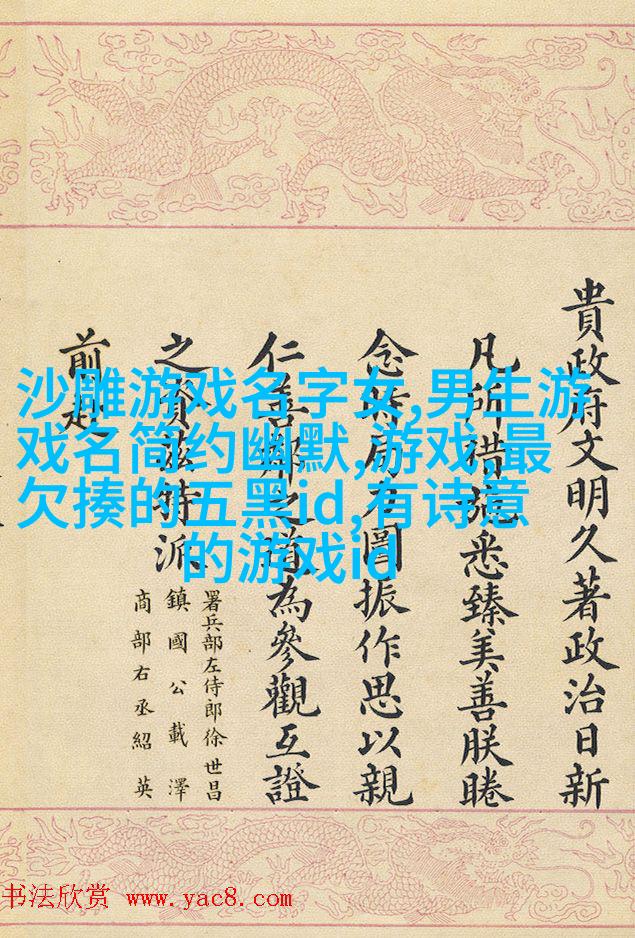 沙雕游戏名字女,男生游
戏名简约幽默,游戏,最
欠揍的五黑id,有诗意
的游戏id
貴政府文明久著政治日新
凡所措施悉臻美善朕睠
念時局力圖振作思以親
仁善鄰之道為參觀互證
之資茲特派
署兵部左侍郎徐世昌
鎮國公載澤
商部右丞紹英
前赴
书法欣赏 www.yac8.com